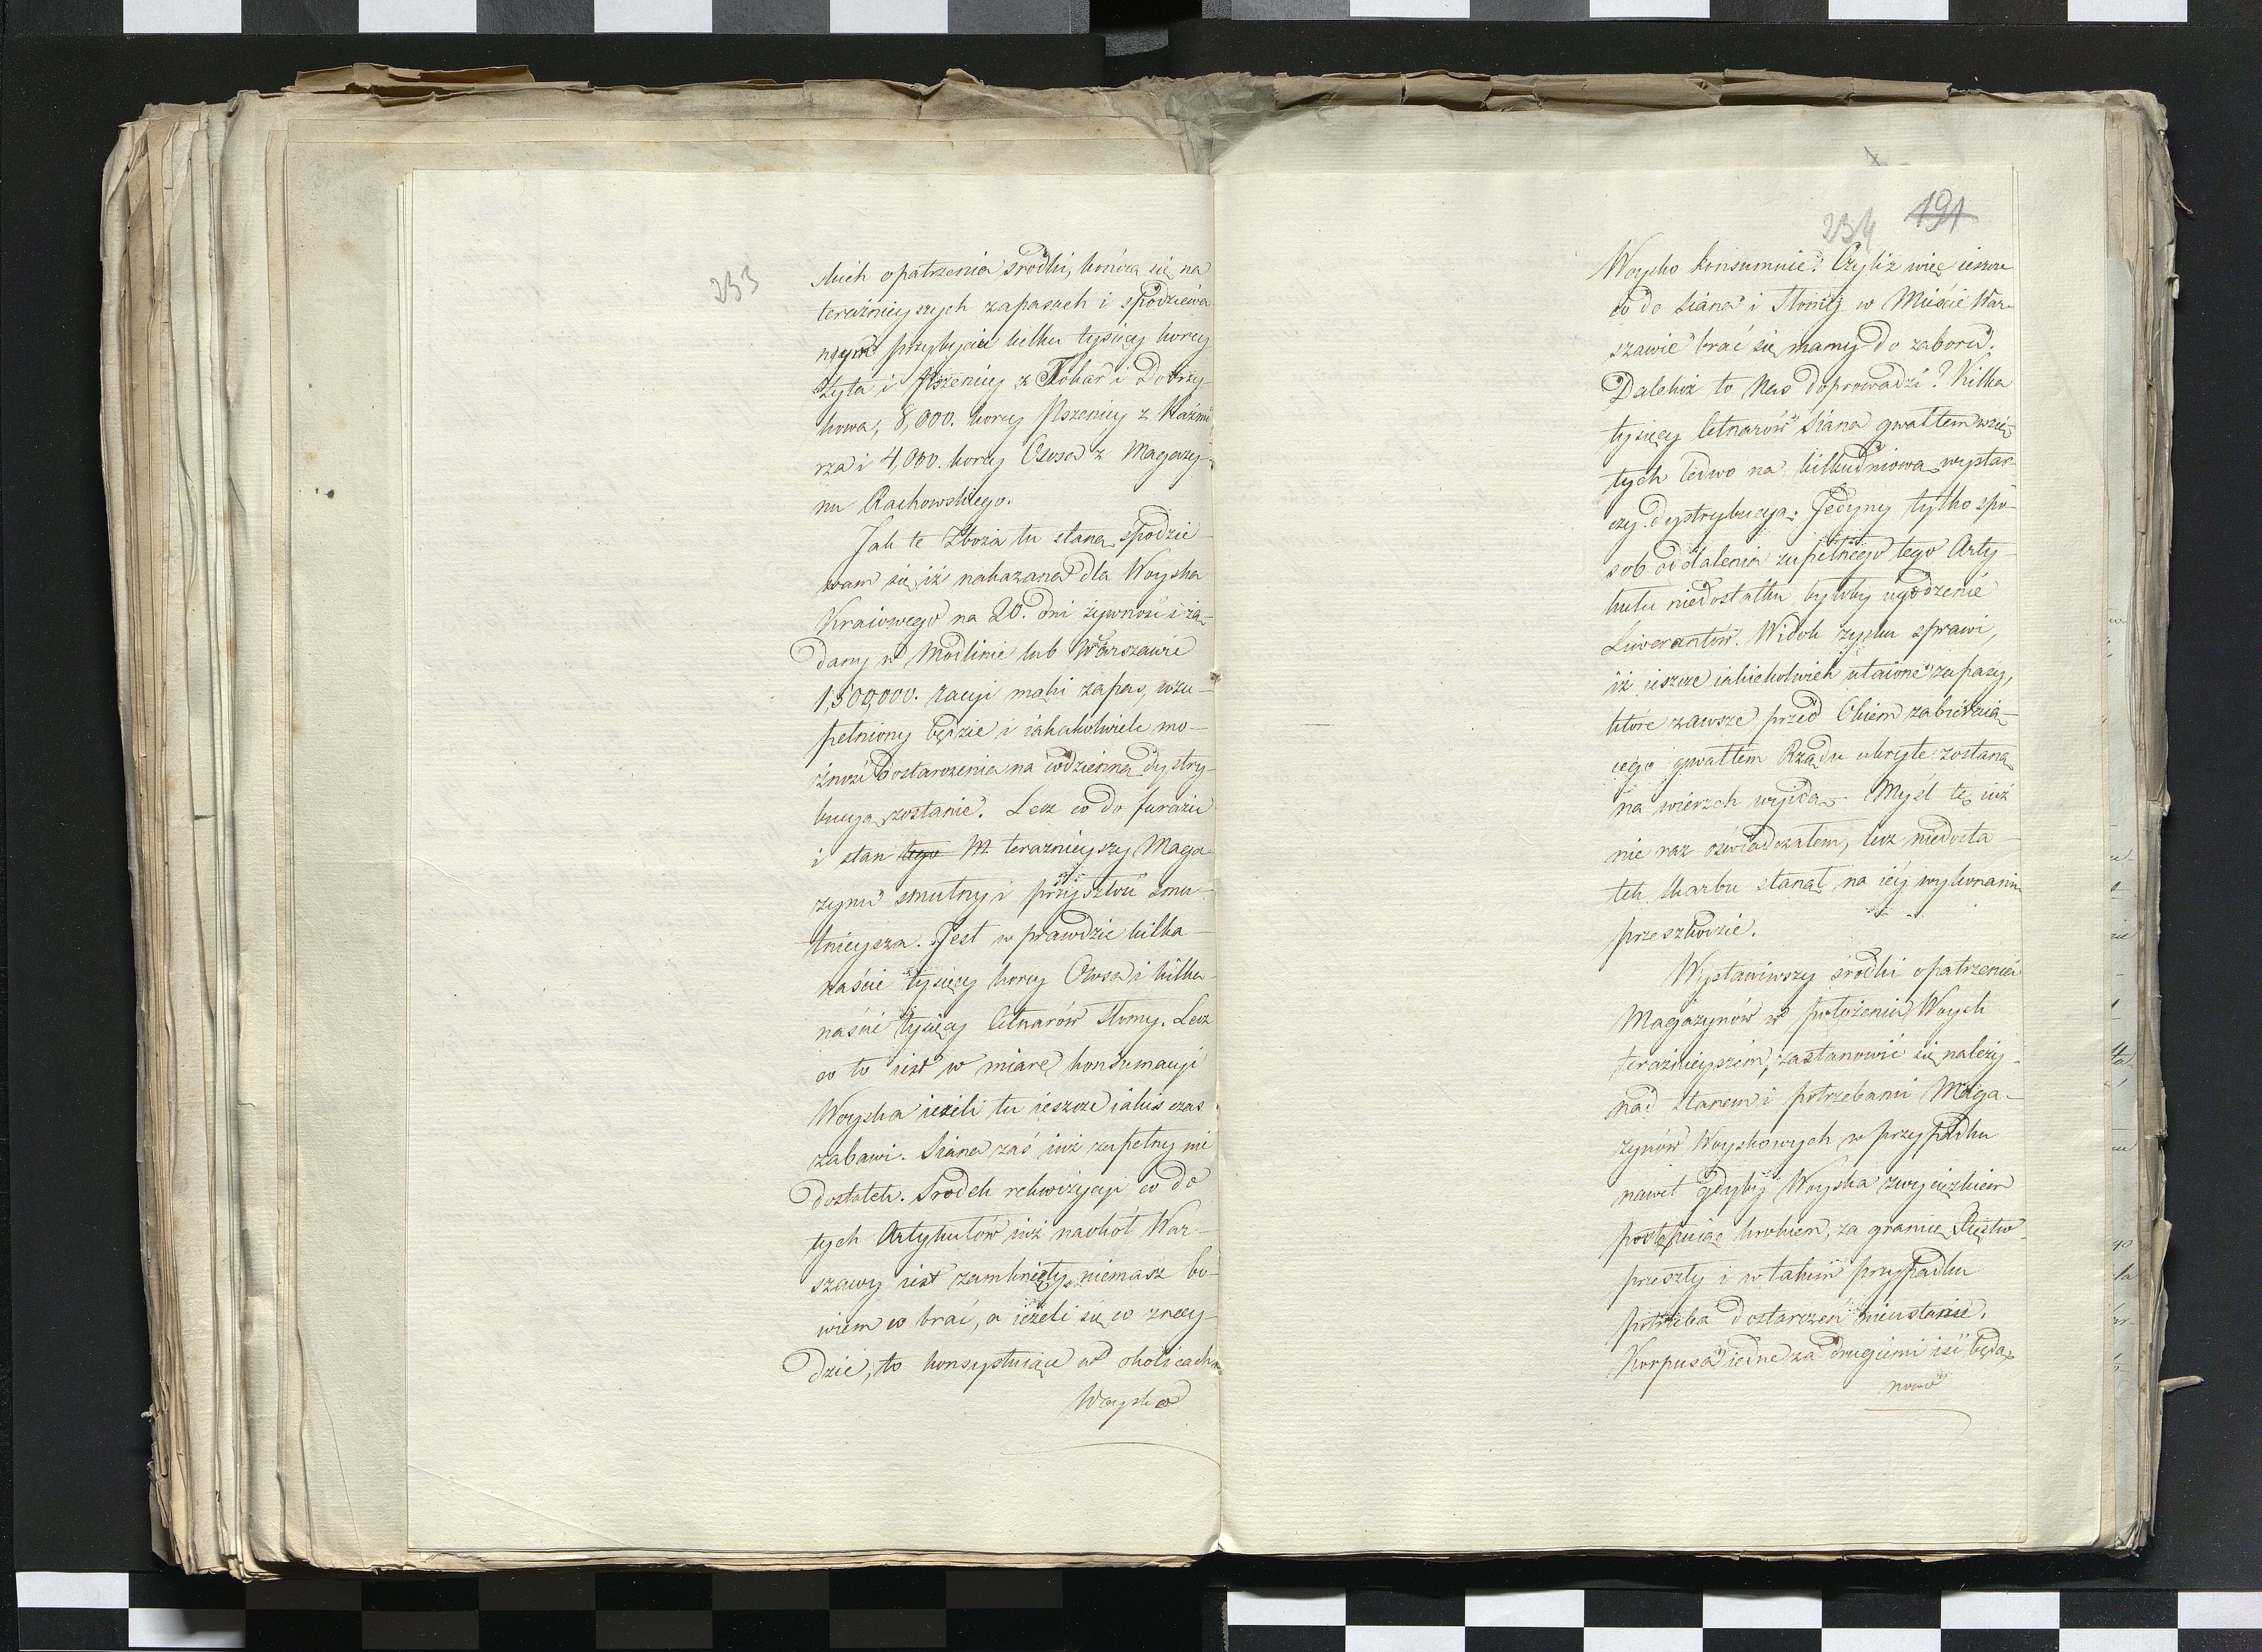 233
skich opatrzenia srodki, kończą się na
teraźnieyszych zapasach i spodziewa
nym przybyciu kilku tysięcy korcy
Żyta i Pszenicy z Tokar i Dobrzy-
kowa, 8,000. korcy Pszenicy z Kaźmi
rza i 4,000. korcy Owsa z Magazy-
nu Rachowskiego.
Jak te Zboża tu staną spodzie-
wam się, iż nakazana dla Woyska
Kraiowego na 20. dni żywność i żą-
dany w Modlinie lub Warszawie
1,500,000. racyi mąki zapas, uzu-
pełniony będzie i iakakolwiek mo-
żność dostarczenia na codzienną dystry-
bucyą zostanie. Lecz co do furażu
i stan tego M. teraznieyszy Maga-
zynu smutny i przyszłość smu-
tnieysza. Jest w prawdzie kilka-
naście tysięcy korcy Owsa i kilka-
naście tysięcy Cetnarów Słomy. Lecz
co to iest w miarę konsumacyi
Woyska ieżeli tu ieszcze iakiś czas
zabawi. Siana zaś iuż zupełny nie
dostatek. Srodek rekwizycyi co do
tych Artykułów iuż naokoł War-
szawy iest zamknięty, niemasz bo-
wiem co brać, a ieżeli się co znay-
dzie, to konsystuiące w okolicach
Woysko
234 191
Woysko konsumuie? Czyliż więc ieszcze
co do Siana i Słomy w Mieście War-
szawie brać się mamy do zaboru.
Dalekoż to Nas doprowadzi? Kilka
tysięcy Cetnarów Siana gwałtem wzię-
tych ledwo na kilkudniową wystar-
czy dystrybucyą: Jedyny tylko spo-
sob oddalenia zupełnego tego Arty-
kułu niedostatku byłoby ugodzenie
Liwerantów. Widok zysku sprawi,
iż ieszcze iakiekolwiek utaione zapasy,
które zawsze przed Okiem zabieraią-
cego gwałtem Rządu ukryte zostaną
na wierzch wyidą. Myśl tę iuż
nie raz oświadczałem, lecz niedosta-
tek Skarbu stanął na iéy wykonaniu
przeszkodzie.
Wystawiwszy środki opatrzenia
Magazynów w położeniu Woysk
teraźnieyszém, zastanowić się należy
nad Stanem i potrzebami Maga-
zynów Woyskowych w przypadku
nawet gdyby Woyska zwycięzkiem
postępuiąc krokiem, za granicę Xięstw
przeszły i w takim przypadku
potrzeba dostarczeń nieustanie.
Korpusa iedne za drugiemi iść będą
nowe